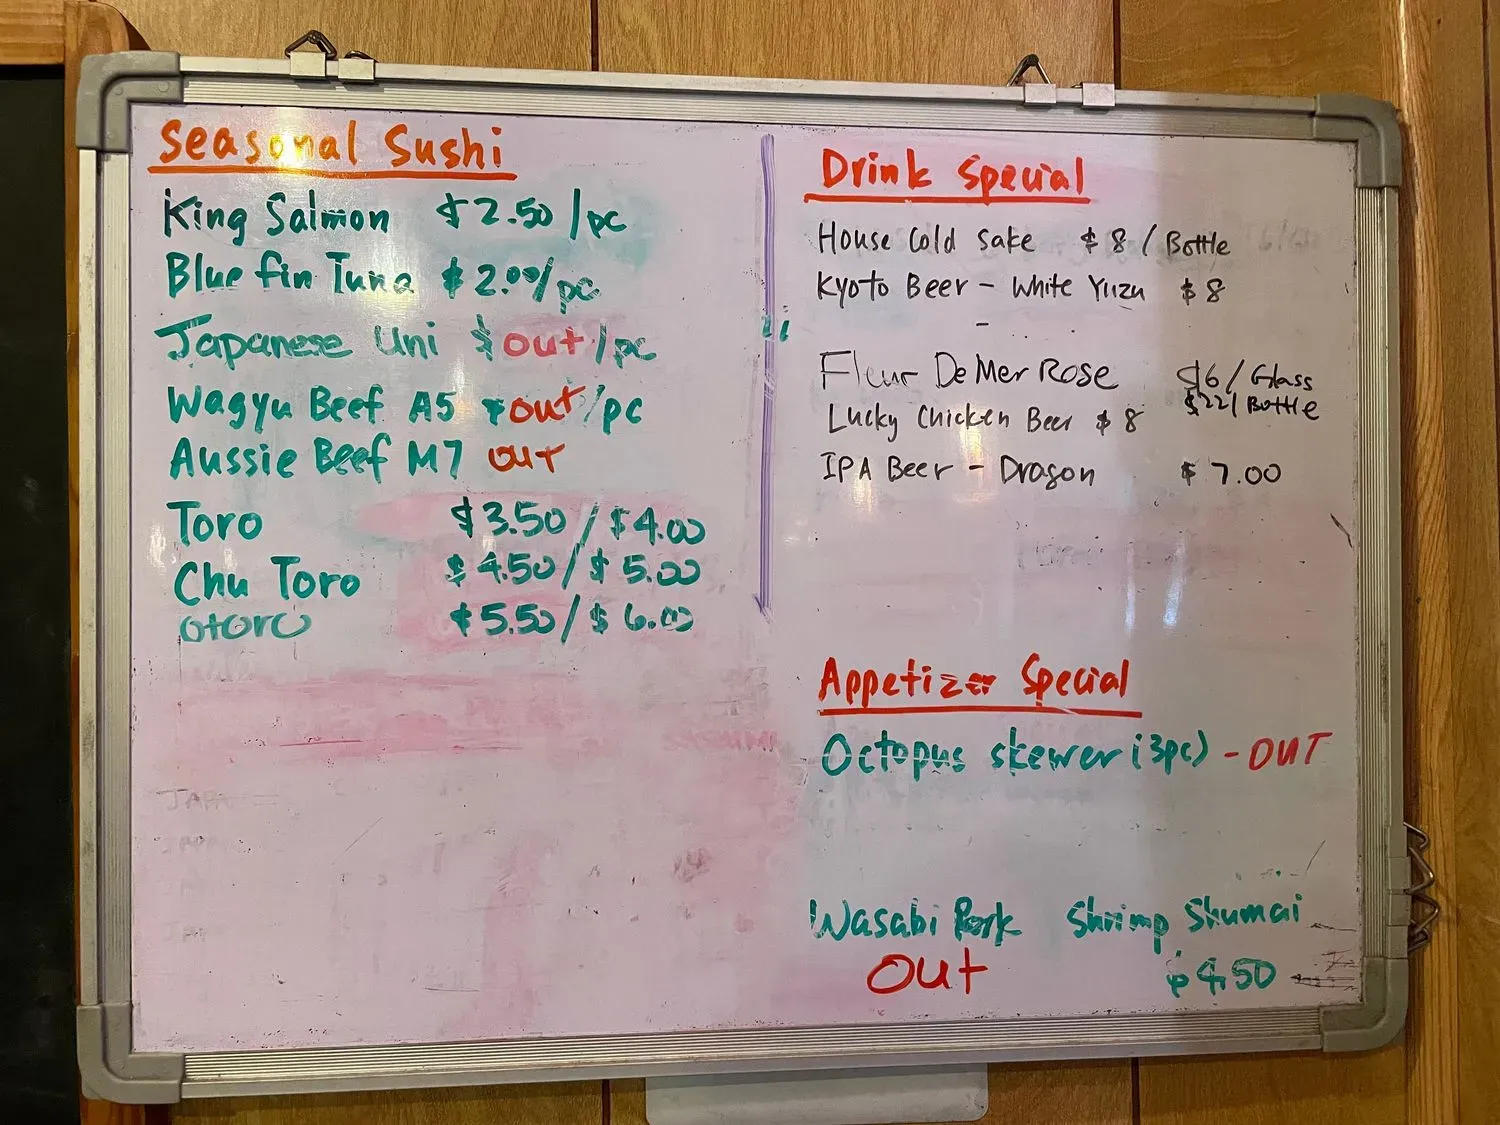 Seasonal Sushi
King Salmon $2.50/pc
Blue fin Tuna $2.00/pc
Japanese Uni $ out/pc
Wagyu Beef A5 $ out/pc
Aussie Beef M7 out
Toro $3.50/$4.00
Chu Toro $4.50/$5.00
otoro $5.50/$6.00
Drink Special
House Cold Sake $8/Bottle
Kyoto Beer - White Yuzu $8
Fleur De Mer Rose $6/Glass
$22/Bottle
Lucky Chicken Beer $8
IPA Beer - Dragon $7.00
Appetizer Special
Octopus skewer (3pc) - OUT
Wasabi Pork Shrimp Shumai
Out $4.50